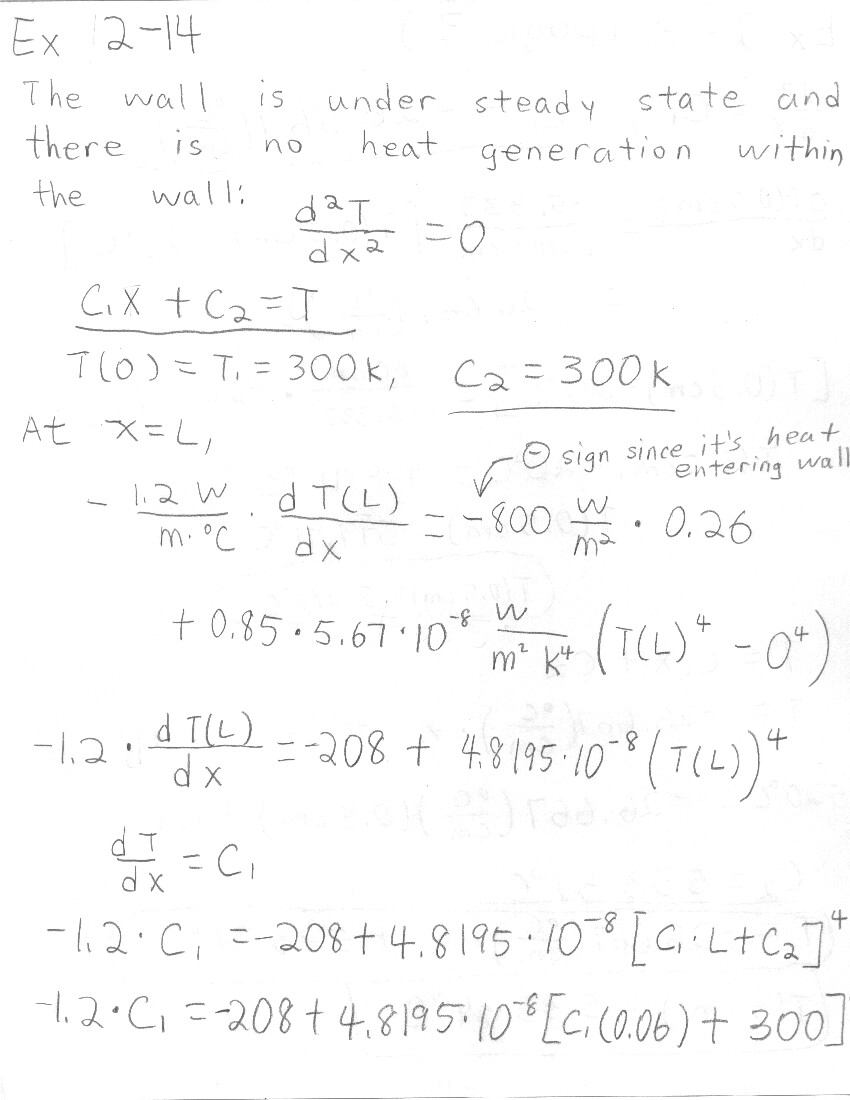 Ex 2-14
The wall is under steady state and
there is no heat generation within
the wall: d²T/dx² = 0
C₁X + C₂ = T
T(0) = T₁ = 300k, C₂ = 300k
At x=L,
⊖ sign since it's heat
entering wall
- 1.2 W/m·°C · dT(L)/dx = -800 W/m² · 0.26
+ 0.85 · 5.67 · 10⁻⁸ W/m² k⁴ (T(L)⁴ - 0⁴)
-1.2 · dT(L)/dx = -208 + 4.8195·10⁻⁸ (T(L))⁴
dT/dx = C₁
-1.2 · C₁ = -208 + 4.8195 · 10⁻⁸ [C₁·L+C₂]⁴
-1.2·C₁ = -208 + 4.8195·10⁻⁸[C₁(0.06) + 300]